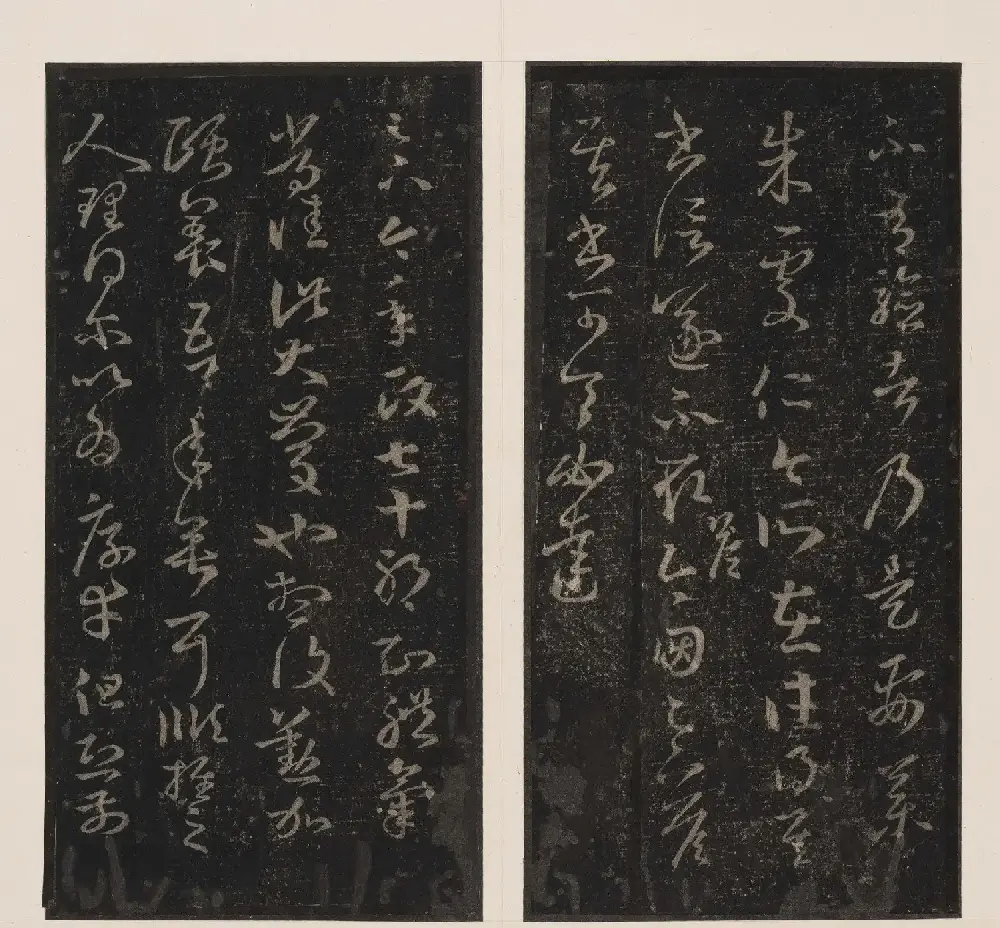 不有驗者乃是要藥
朱處仁今所在往得其
書信遂不取答今因足下答
其書可令必達
足下今年政七十耶知體氣
常佳此大慶也想復懃加
頤養吾年垂耳順推之
人理得爾以為厚幸但恐前